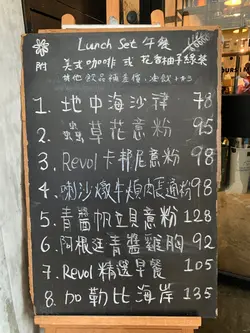 Lunch Set 午餐
附 美式咖啡 或 花香柚子綠茶
其他飲品補差價, 凍飲+$3
1. 地中海沙律 78
2. 草花意粉 95
3. Revol 卡邦尼意粉 98
4. 喇沙燉牛頰肉長通粉 98
5. 青醬帆立貝意粉 128
6. 阿根廷青醬雞胸 92
7. Revol 精選早餐 105
8. 加勒比海岸 135